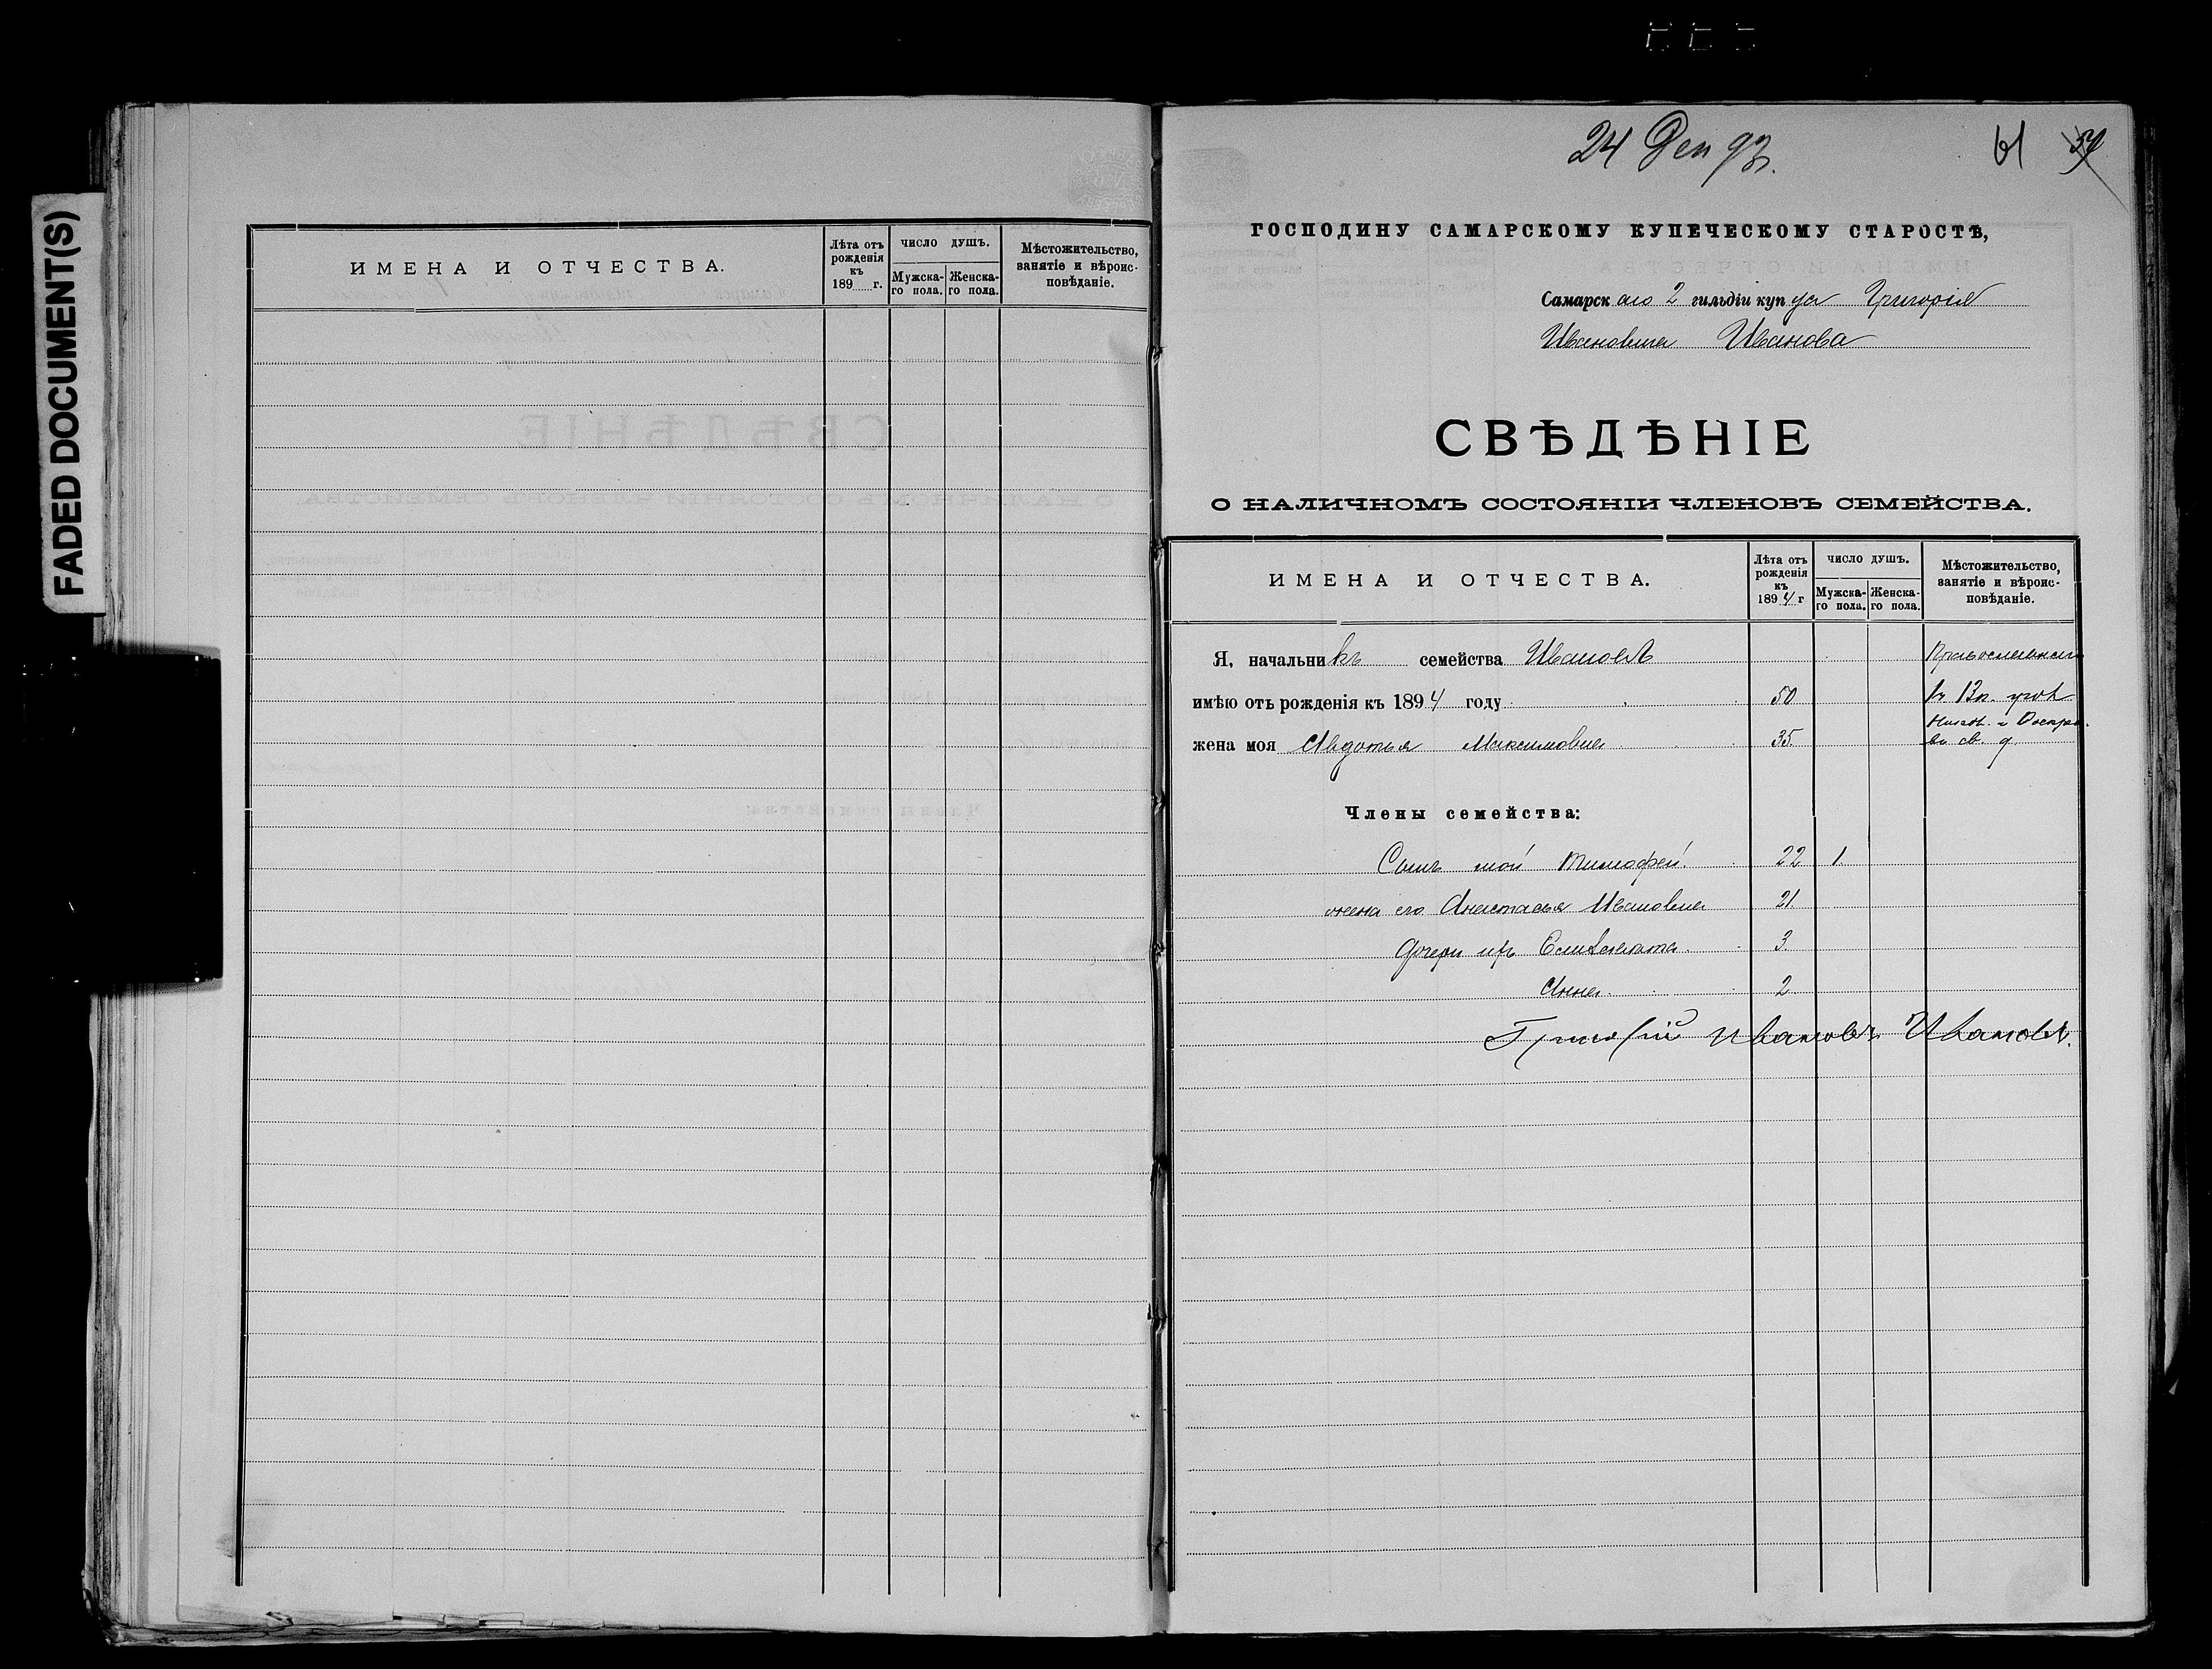 FADED DOCUMENT(S)
ИМЕНА И ОТЧЕСТВА.
Лѣта отъ рожденія къ 189 г.
ЧИСЛО ДУШЪ.
Мужска-го пола.
Женска-го пола.
Мѣстожительство, занятіе и вѣроис-повѣданіе.
24 Дек 93.
61 59
ГОСПОДИНУ САМАРСКОМУ КУПЕЧЕСКОМУ СТАРОСТѢ,
Самарскаго 2 гильдіи купца Григорія
Ивановича Иванова
СВѢДѢНІЕ
О НАЛИЧНОМЪ СОСТОЯНІИ ЧЛЕНОВЪ СЕМЕЙСТВА.
ИМЕНА И ОТЧЕСТВА.
Лѣта отъ рожденія къ 1894 г
ЧИСЛО ДУШЪ.
Мужска-го пола.
Женска-го пола.
Мѣстожительство, занятіе и вѣроис-повѣданіе.
Я, начальникъ семейства Ивановъ
имѣю отъ рожденія къ 1894 году 50
жена моя Авдотья Максимовна 35.
въ св. д.
Члены семейства:
Сынъ мой Тимофей. 22 1
жена его Анастасья Ивановна 21.
дочери ихъ Елизавета 3
Анна 2
Григорій Ивановъ Ивановъ.